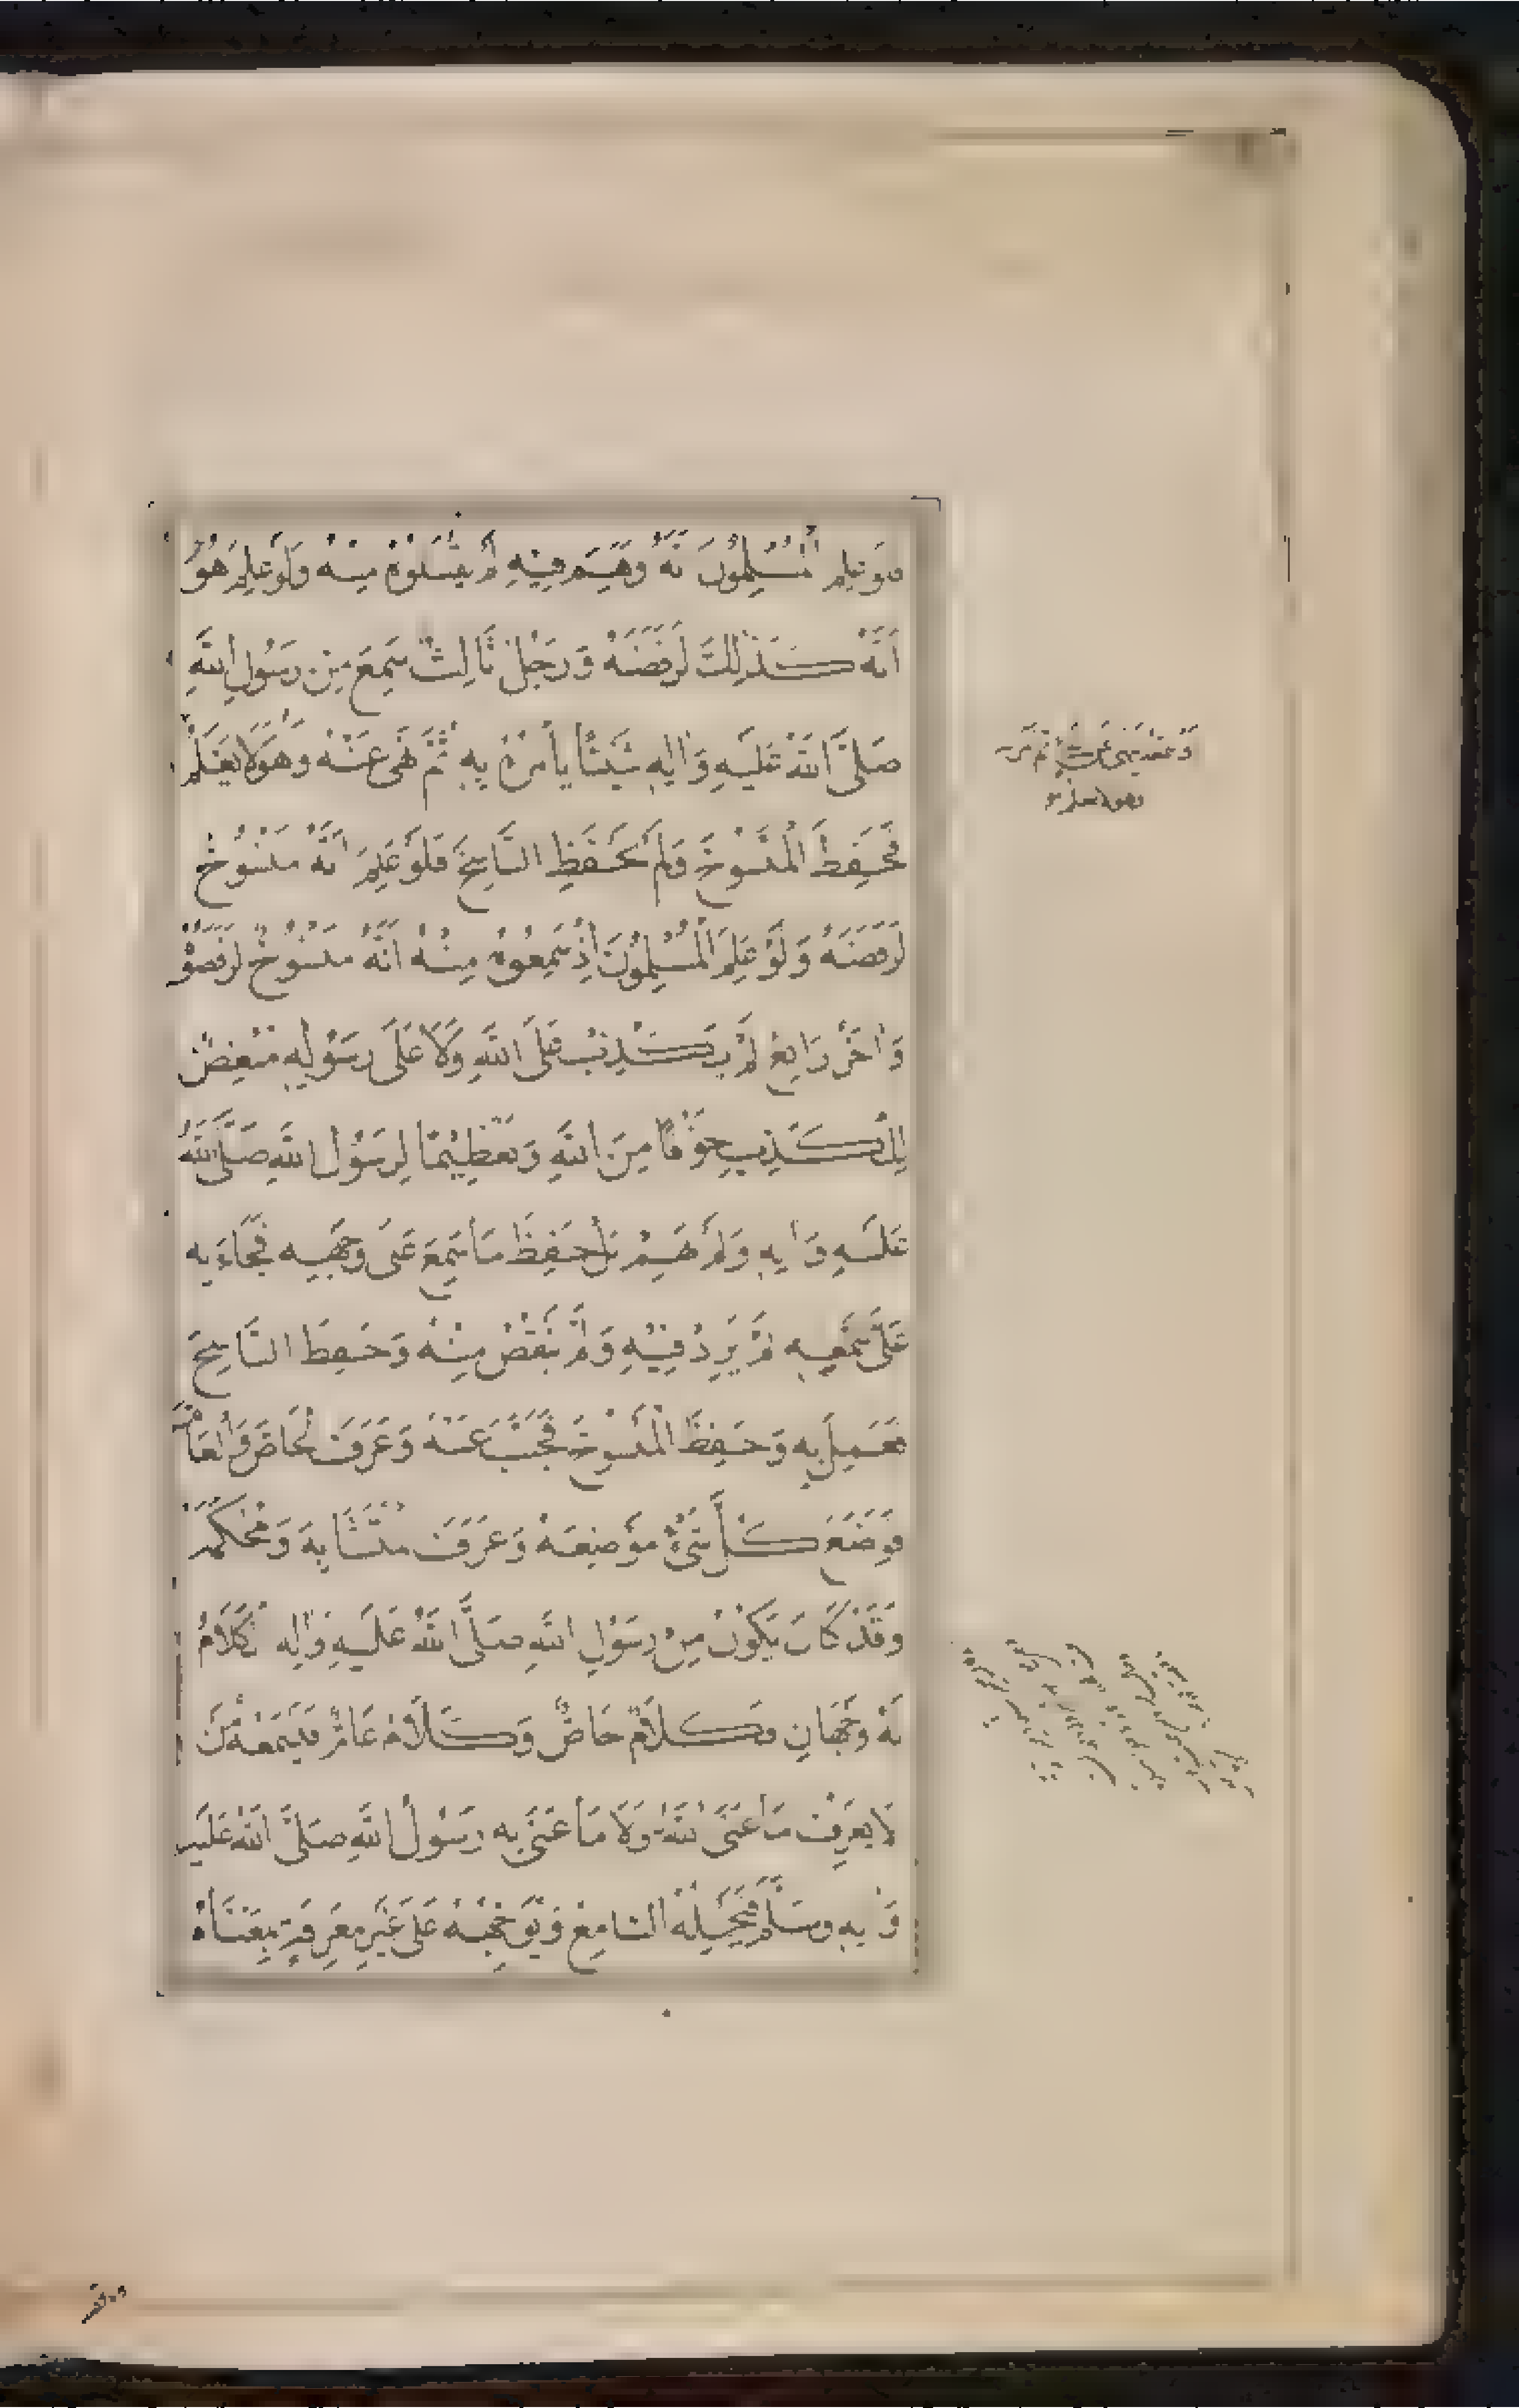 فَلَوْ عَلِمَ الْمُسْلِمُونَ أَنَّهُ وَهِمَ فِيهِ لَمْ يَقْبَلُوهُ مِنْهُ وَلَوْ عَلِمَ هُوَ
أَنَّهُ كَذَلِكَ لَرَفَضَهُ وَرَجُلٌ ثَالِثٌ سَمِعَ مِنْ رَسُولِ اللَّهِ
صَلَّى اللَّهُ عَلَيْهِ وَآلِهِ شَيْئًا يَأْمُرُ بِهِ ثُمَّ نَهَى عَنْهُ وَهُوَ لَا يَعْلَمُ
فَحَفِظَ الْمَنْسُوخَ وَلَمْ يَحْفَظِ النَّاسِخَ فَلَوْ عَلِمَ أَنَّهُ مَنْسُوخٌ
لَرَفَضَهُ وَلَوْ عَلِمَ الْمُسْلِمُونَ إِذْ سَمِعُوهُ مِنْهُ أَنَّهُ مَنْسُوخٌ لَرَفَضُوهُ
وَآخَرُ رَابِعٌ لَمْ يَكْذِبْ عَلَى اللَّهِ وَلَا عَلَى رَسُولِهِ مُبْغِضٌ
لِلْكَذِبِ خَوْفًا مِنَ اللَّهِ وَتَعْظِيمًا لِرَسُولِ اللَّهِ صَلَّى اللَّهُ
عَلَيْهِ وَآلِهِ وَلَمْ يَهِمْ بَلْ حَفِظَ مَا سَمِعَ عَلَى وَجْهِهِ فَجَاءَ بِهِ
عَلَى سَمْعِهِ لَمْ يَزِدْ فِيهِ وَلَمْ يَنْقُصْ مِنْهُ وَحَفِظَ النَّاسِخَ
فَعَمِلَ بِهِ وَحَفِظَ الْمَنْسُوخَ فَجَنَّبَ عَنْهُ وَعَرَفَ الْخَاصَّ وَالْعَامَّ
فَوَضَعَ كُلَّ شَيْءٍ مَوْضِعَهُ وَعَرَفَ مُتَشَابِهَ وَمُحْكَمَهُ
وَقَدْ كَانَ يَكُونُ مِنْ رَسُولِ اللَّهِ صَلَّى اللَّهُ عَلَيْهِ وَآلِهِ الْكَلَامُ
لَهُ وَجْهَانِ فَكَلَامٌ خَاصٌّ وَكَلَامٌ عَامٌّ فَيَسْمَعُهُ مَنْ
لَا يَعْرِفُ مَا عَنَى اللَّهُ وَلَا مَا عَنَى بِهِ رَسُولُ اللَّهِ صَلَّى اللَّهُ عَلَيْهِ
وَآلِهِ وَسَلَّمَ فَيَحْمِلُهُ السَّامِعُ وَيُوَجِّهُهُ عَلَى غَيْرِ مَعْرِفَةٍ بِمَعْنَاهُ